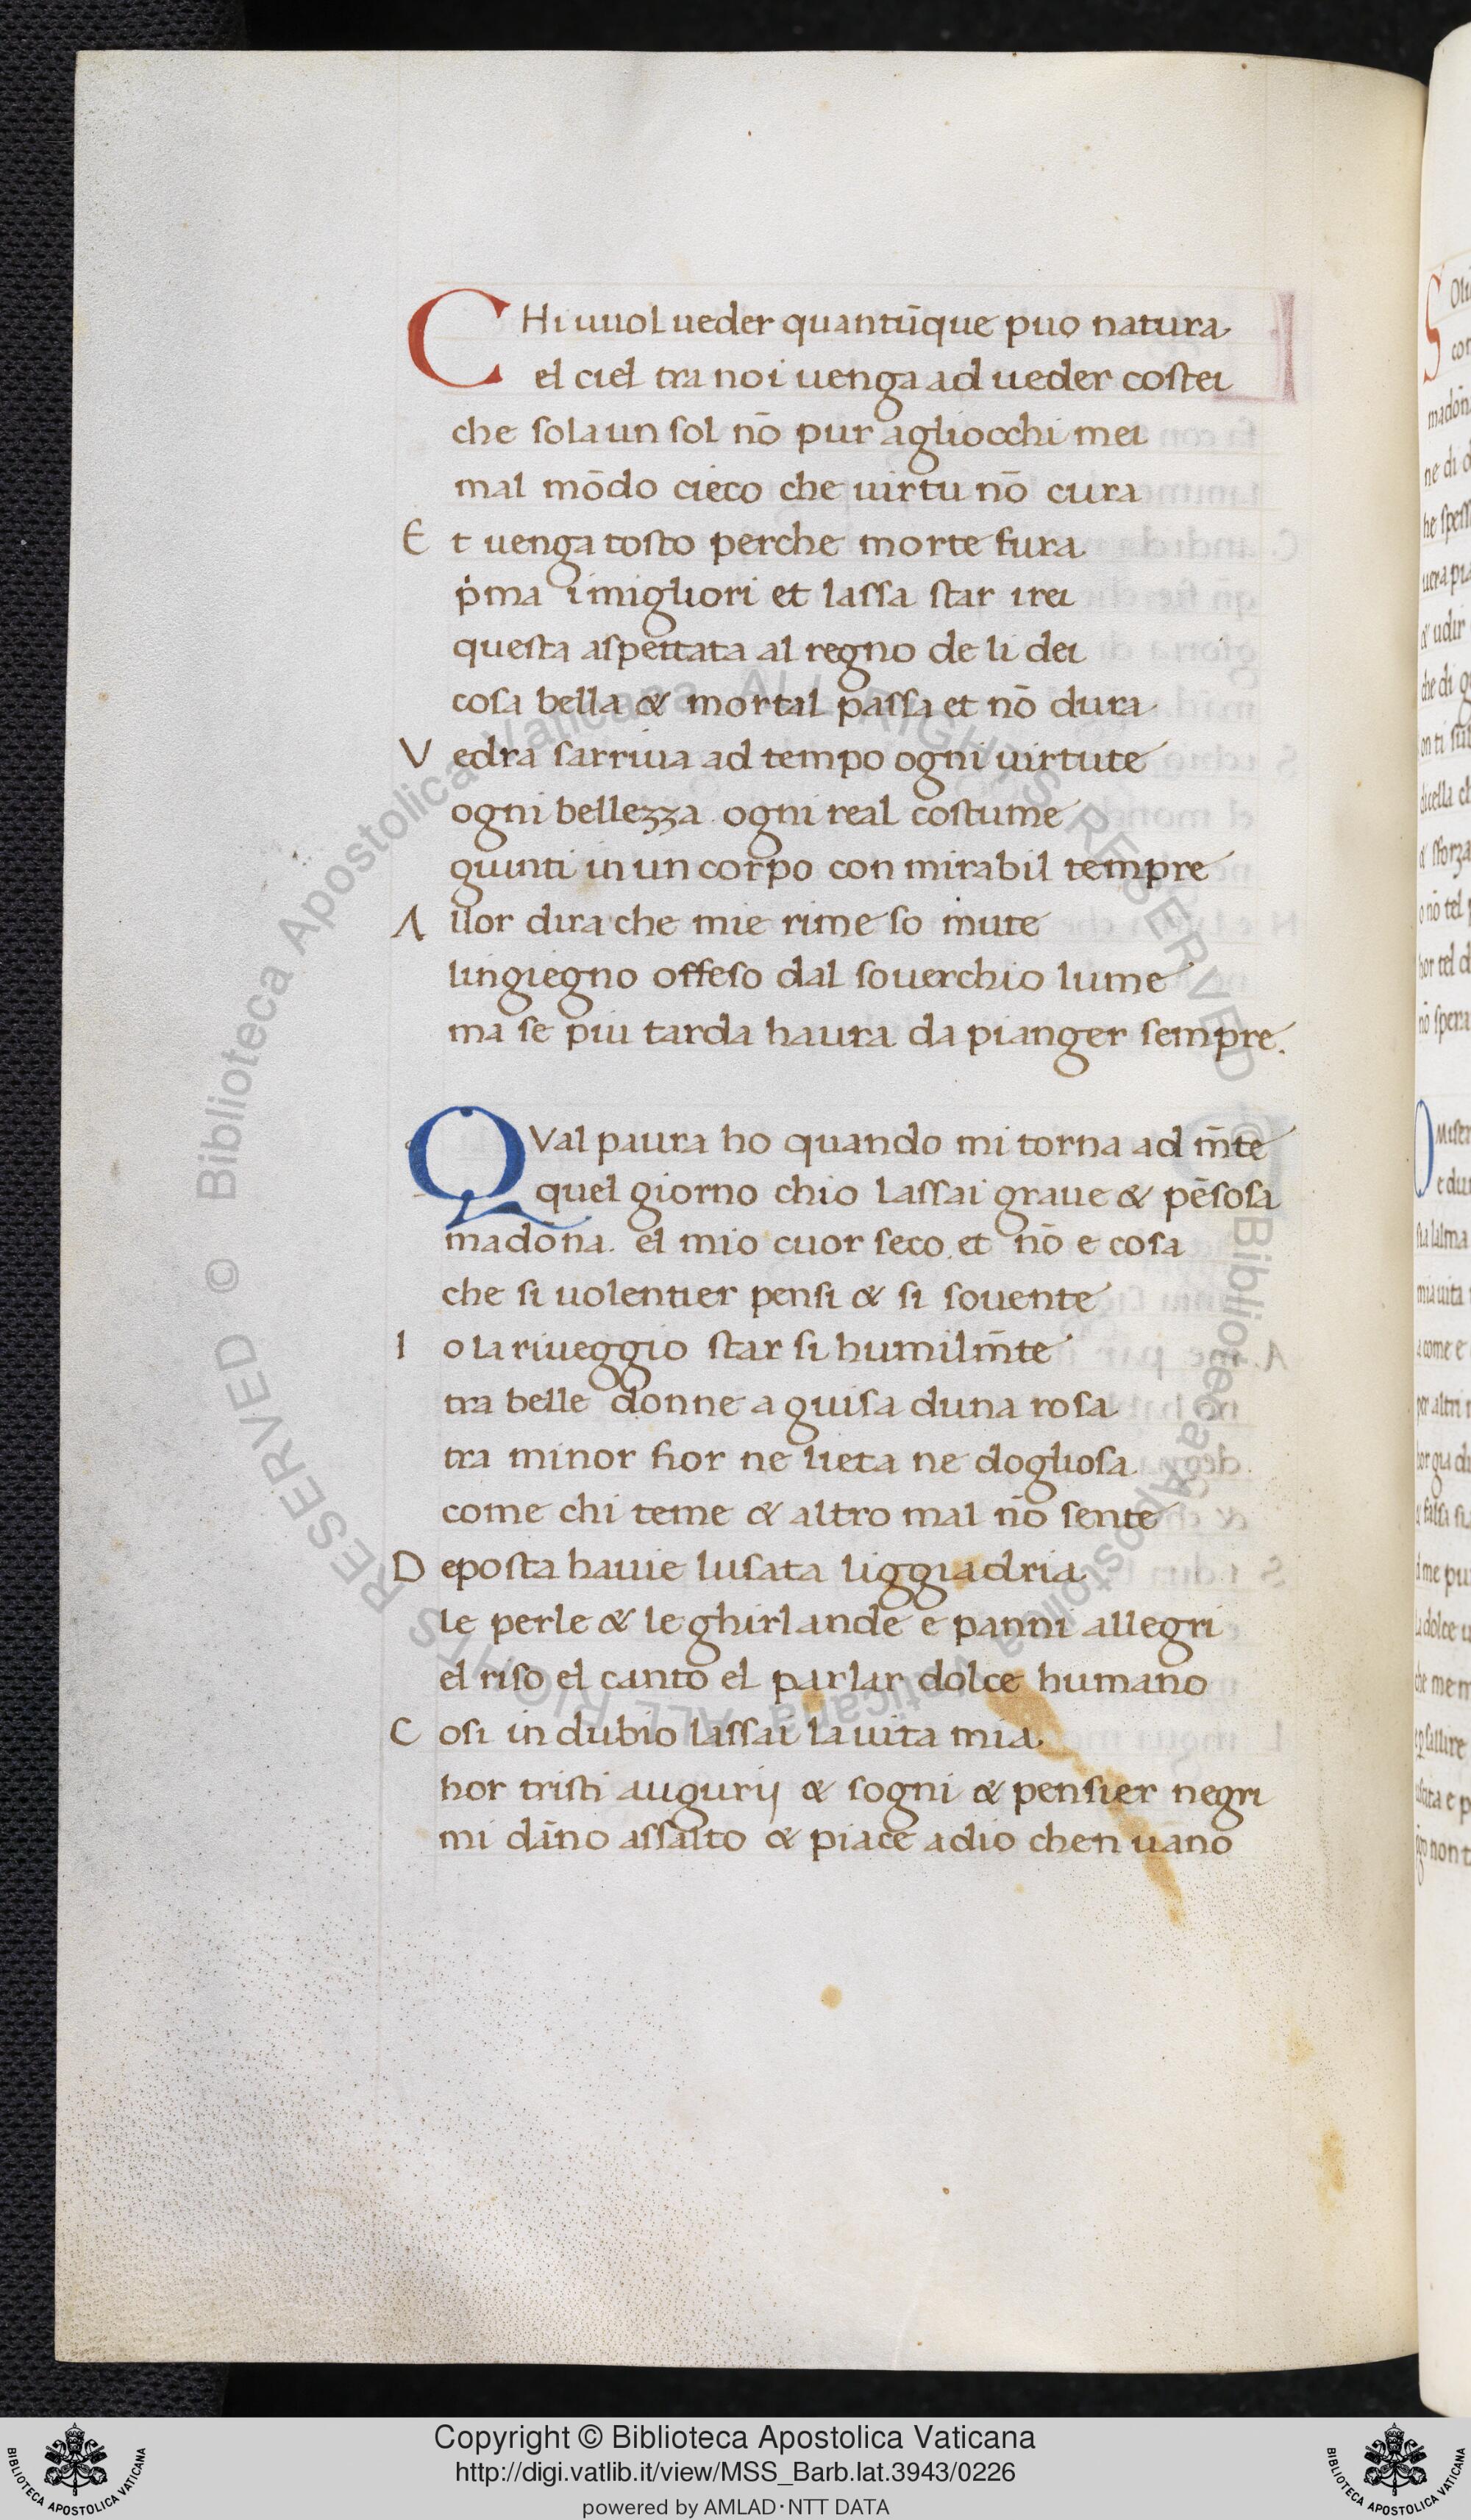 CHi uuol ueder quantūque puo natura
el ciel tra noi uenga ad ueder costei
che sola un sol nō pur agliocchi mei
mal mōdo cieco che uirtu nō cura
Et uenga tosto perche morte fura
ṗma i migliori et lassa star irei
questa aspettata al regno de li dei
cosa bella & mortal passa et nō dura
Vedra sarriua ad tempo ogni uirtute
ogni bellezza ogni real costume
giunti in un corpo con mirabil tempre
Allor dira che mie rime so mute
lingiegno offeso dal souerchio lume
ma se piu tarda haura da pianger sempre.
QVal paura ho quando mi torna ad m̄te
quel giorno chio lassai graue & pēsosa
madōna. el mio cuor seco et nō e cosa
che si uolentier pensi & si souente
Io la riueggio star si humilm̄te
tra belle donne a guisa duna rosa
tra minor fior ne lieta ne dogliosa
come chi teme & altro mal nō sente
Deposta hauie lusata liggiadria
le perle & le ghirlande e panni allegri
el riso el canto el parlar dolce humano
Cosi in dubio lassai la uita mia
hor tristi augurij & sogni & pensier negri
mi dāno assalto & piace adio chen uano
Copyright © Biblioteca Apostolica Vaticana
http://digi.vatlib.it/view/MSS_Barb.lat.3943/0226
powered by AMLAD·NTT DATA
BIBLIOTECA APOSTOLICA VATICANA
BIBLIOTECA APOSTOLICA VATICANA
© Biblioteca Apostolica Vaticana ALL RIGHTS RESERVED
© Biblioteca Apostolica Vaticana ALL RIGHTS RESERVED